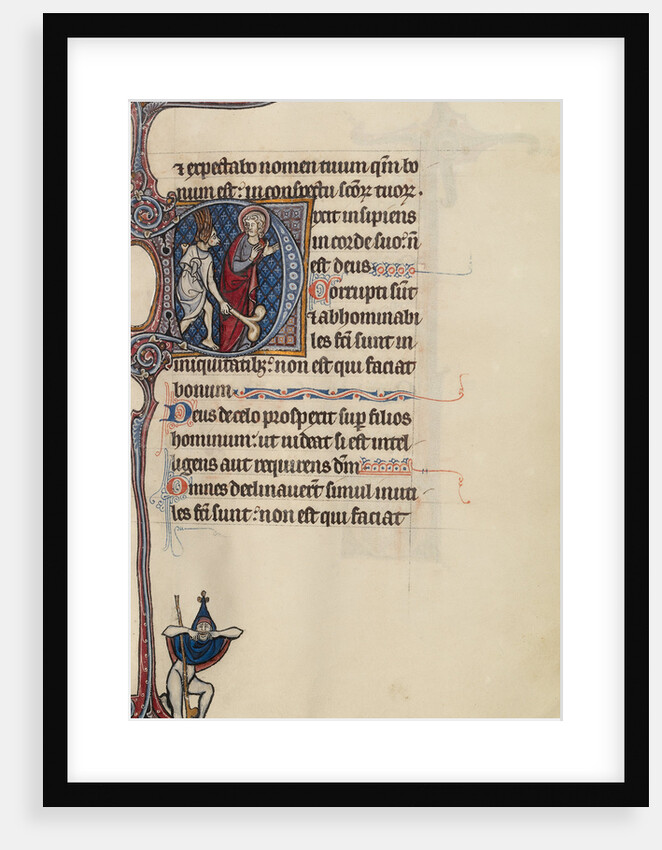 ⁊ expectabo nomen tuum qm̄ bo
num est: in conspectu scōꝝ tuoꝝ.
Dixit insipiens
in corde suo: n̄
est deus
Corrupti sūt
⁊ abhominabi
les fc̄i sunt in
iniquitatibꝫ: non est qui faciat
bonum
Deus de celo prospexit sup̄ filios
hominum: ut uideat si est intel
ligens aut requirens dm̄
Omnes declinauer̄t simul inuti
les fc̄i sunt: non est qui faciat